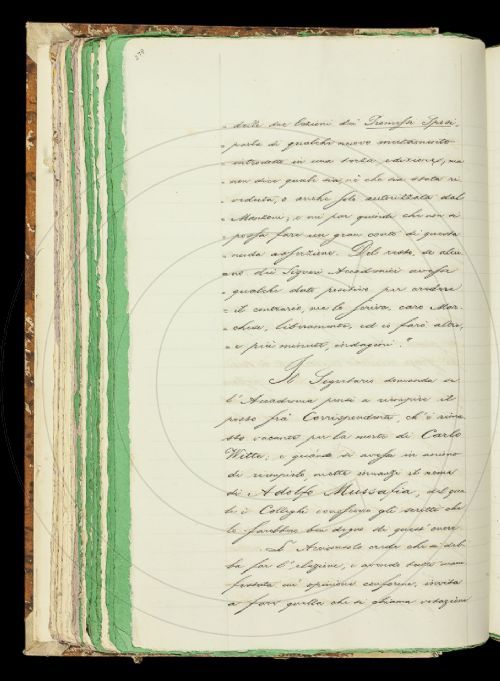 278
„ delle due lezioni dei Promessi Sposi,
„ parla di qualche nuovo mutamento
„ introdotto in una terza edizione, ma
„ non dice quali sia, nè che sia stata ri
„ veduta, o anche solo autorizzata dal
„ Manzoni; e mi par quindi che non si
„ possa fare un gran conto di questa
„ nuda asserzione. Del resto, se alcu
„ no dei Signori Accademici avesse
„ qualche dato positivo per credere
„ il contrario, me lo scriva, caro Mar
„ chese, liberamente, ed io farò altre,
„ e più minute, indagini."
Il Segretario domanda se
l'Accademia pensi a riempire il
posto fra' Corrispondenti, ch'è rima
sto vacante per la morte di Carlo
Witte; e quando si avesse in animo
di riempirlo, mette innanzi il nome
di Adolfo Mussafia, del qua
le i Colleghi conoscono gli scritti che
lo farebbero ben degno di quest'onore.
L'Arciconsolo crede che si deb
ba far l'elezione, e avendo tutti mani
festata un'opinione conforme, invita
a fare quella che si chiama votazione